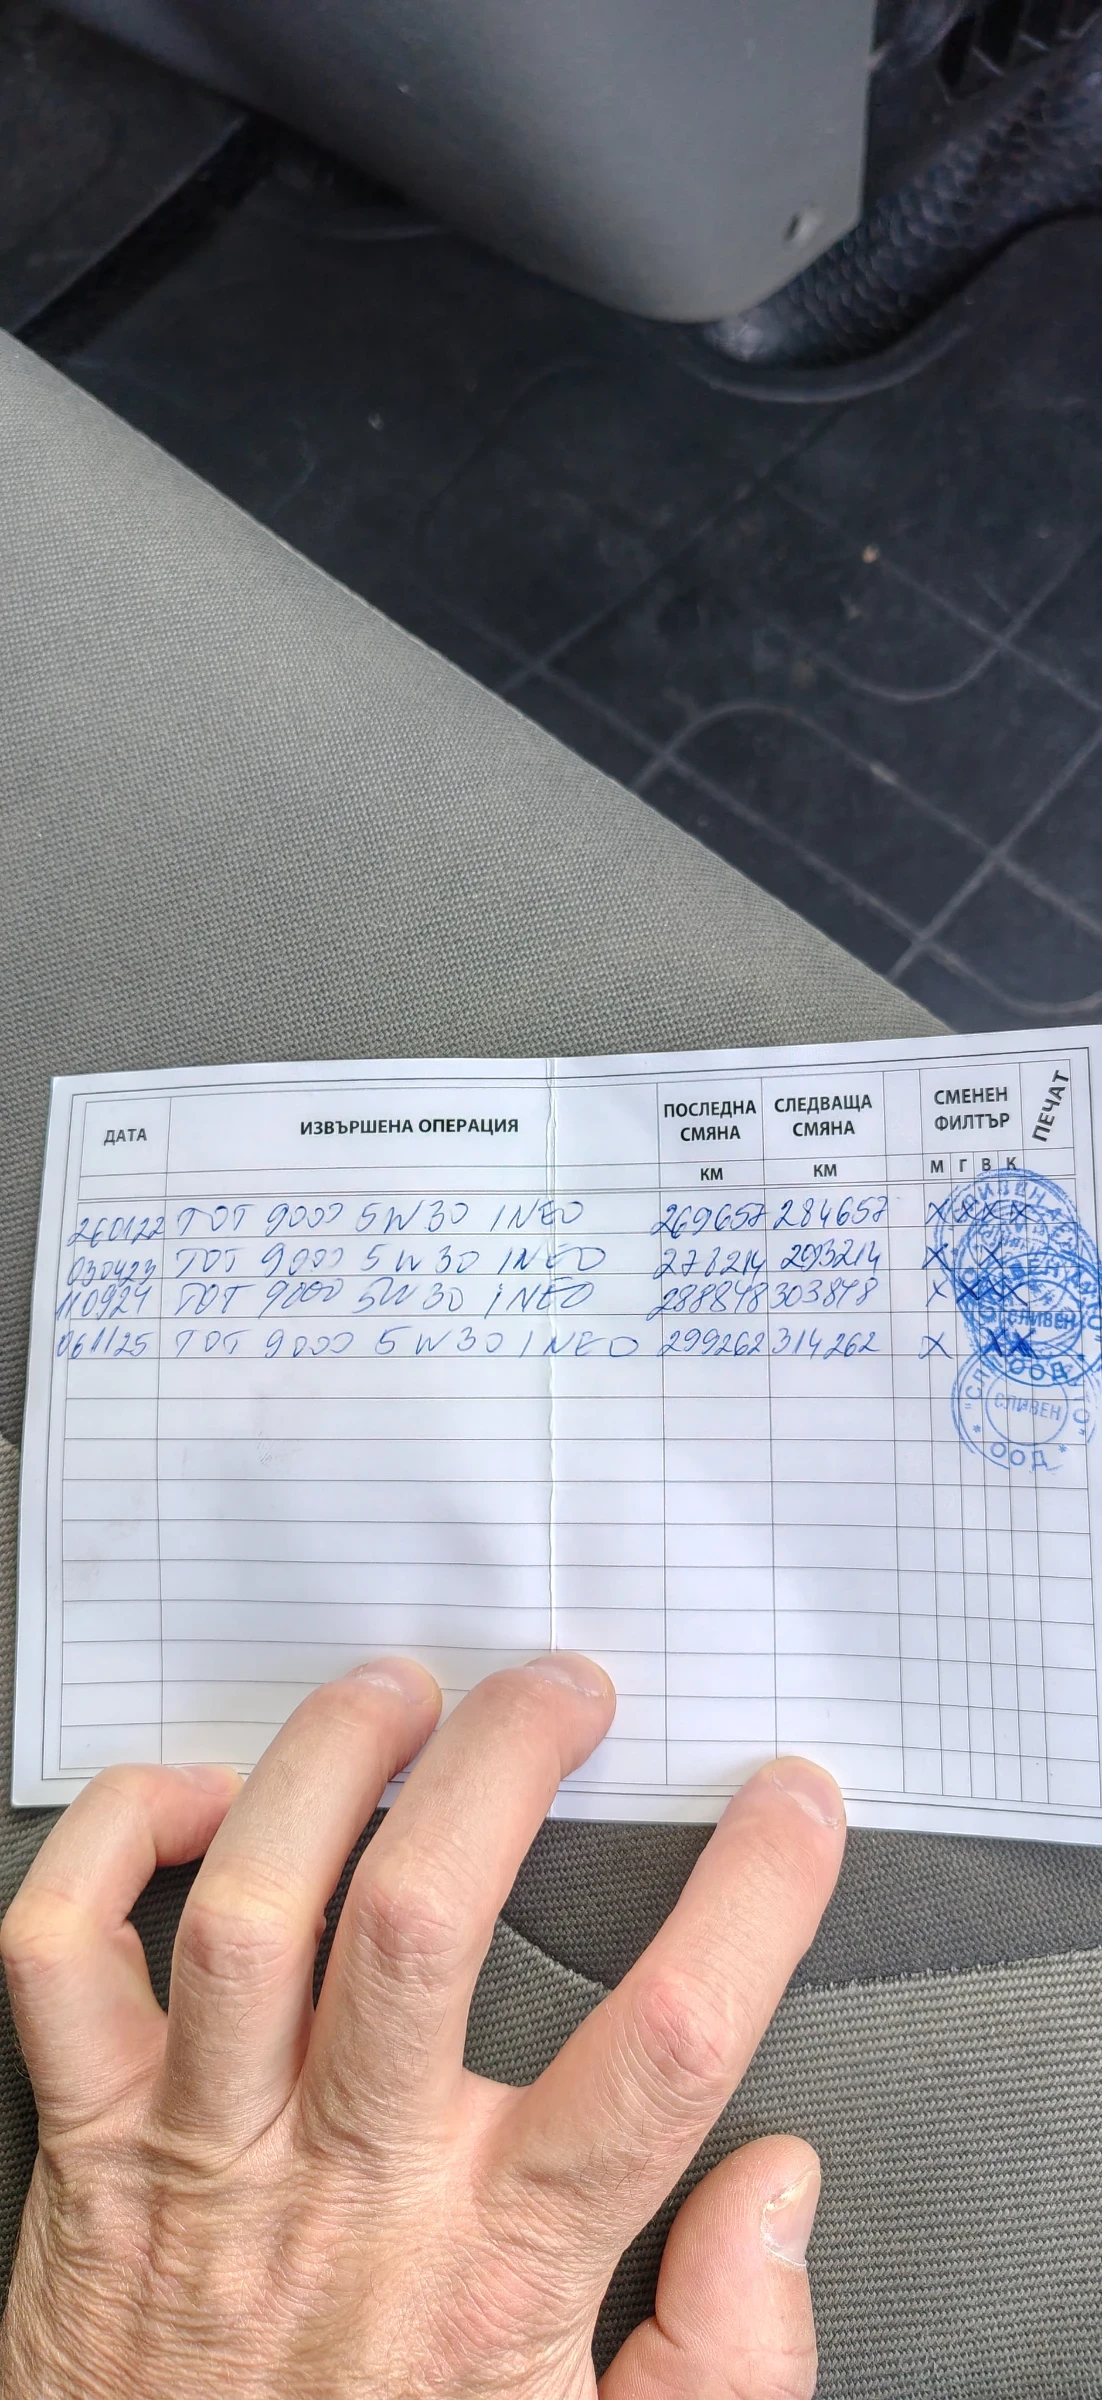 ДАТА ИЗВЪРШЕНА ОПЕРАЦИЯ ПОСЛЕДНА СМЯНА СЛЕДВАЩА СМЯНА СМЕНЕН ФИЛТЪР ПЕЧАТ
КМ КМ М Г В К
260122 TOT 9000 5W30 INEO 269657 284657 X X X X
030423 TOT 9000 5W30 INEO 278214 293214 X X
110924 TOT 9000 5W30 INEO 288848 303848 X X X X
061125 TOT 9000 5W30 INEO 299262 314262 X X X
СЛИВЕН
ООД
СЛИВЕН
ООД